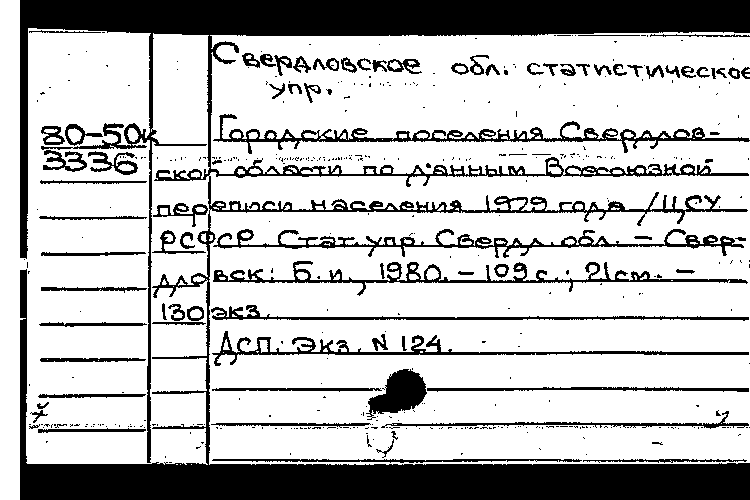 Свердловское обл. статистическое
упр.
80-50к
3336
Городские поселения Свердлов-
ской области по данным Всесоюзной
переписи населения 1979 года / ЦСУ
РСФСР. Стат. упр. Свердл. обл. – Свер-
дловск: Б. и., 1980. – 109 с.; 21 см. –
130 экз.
ДСП. Экз. N 124.